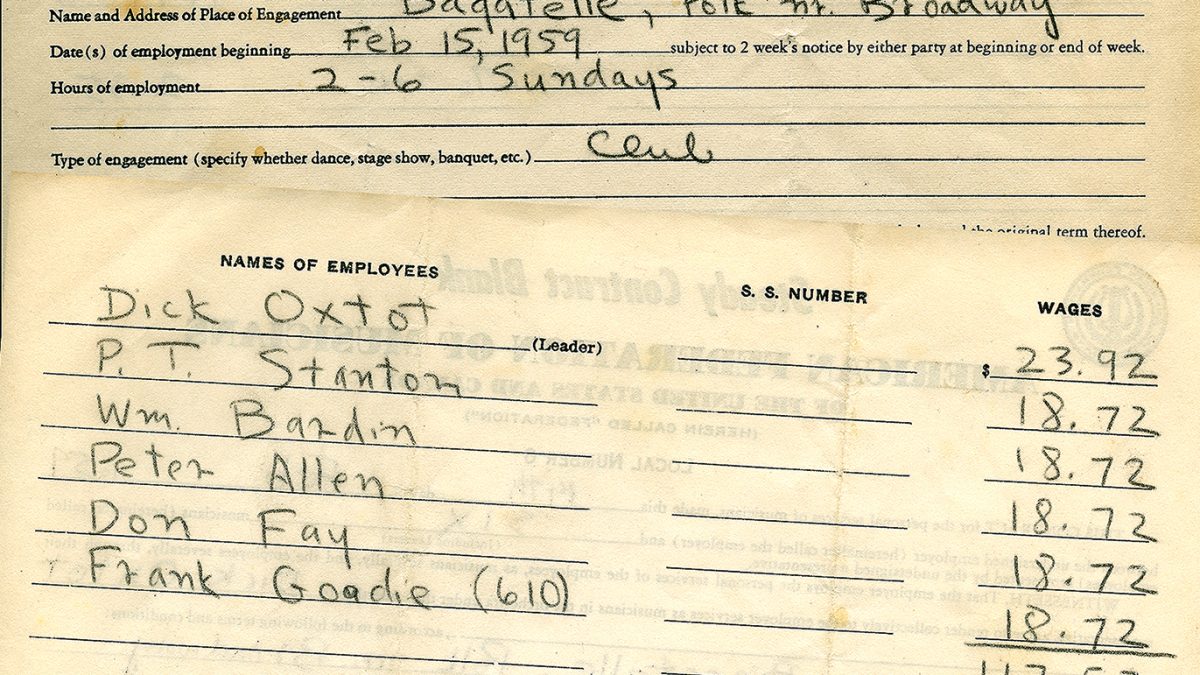 Name and Address of Place of Engagement Bagatelle, Polk nr. Broadway
Date(s) of employment beginning Feb 15, 1959 subject to 2 week's notice by either party at beginning or end of week.
Hours of employment 2-6 Sundays
Type of engagement (specify whether dance, stage show, banquet, etc.) Club
the original term thereof.
NAMES OF EMPLOYEES S. S. NUMBER WAGES
Dick Oxtot (Leader) $ 23.92
P. T. Stanton 18.72
Wm. Bardin 18.72
Peter Allen 18.72
Don Fay 18.72
Frank Goodie (610) 18.72
Steady Contract Blank
AMERICAN FEDERATION OF MUSICIANS
OF THE UNITED STATES AND CANADA
(HEREIN CALLED "FEDERATION")
LOCAL NUMBER 6